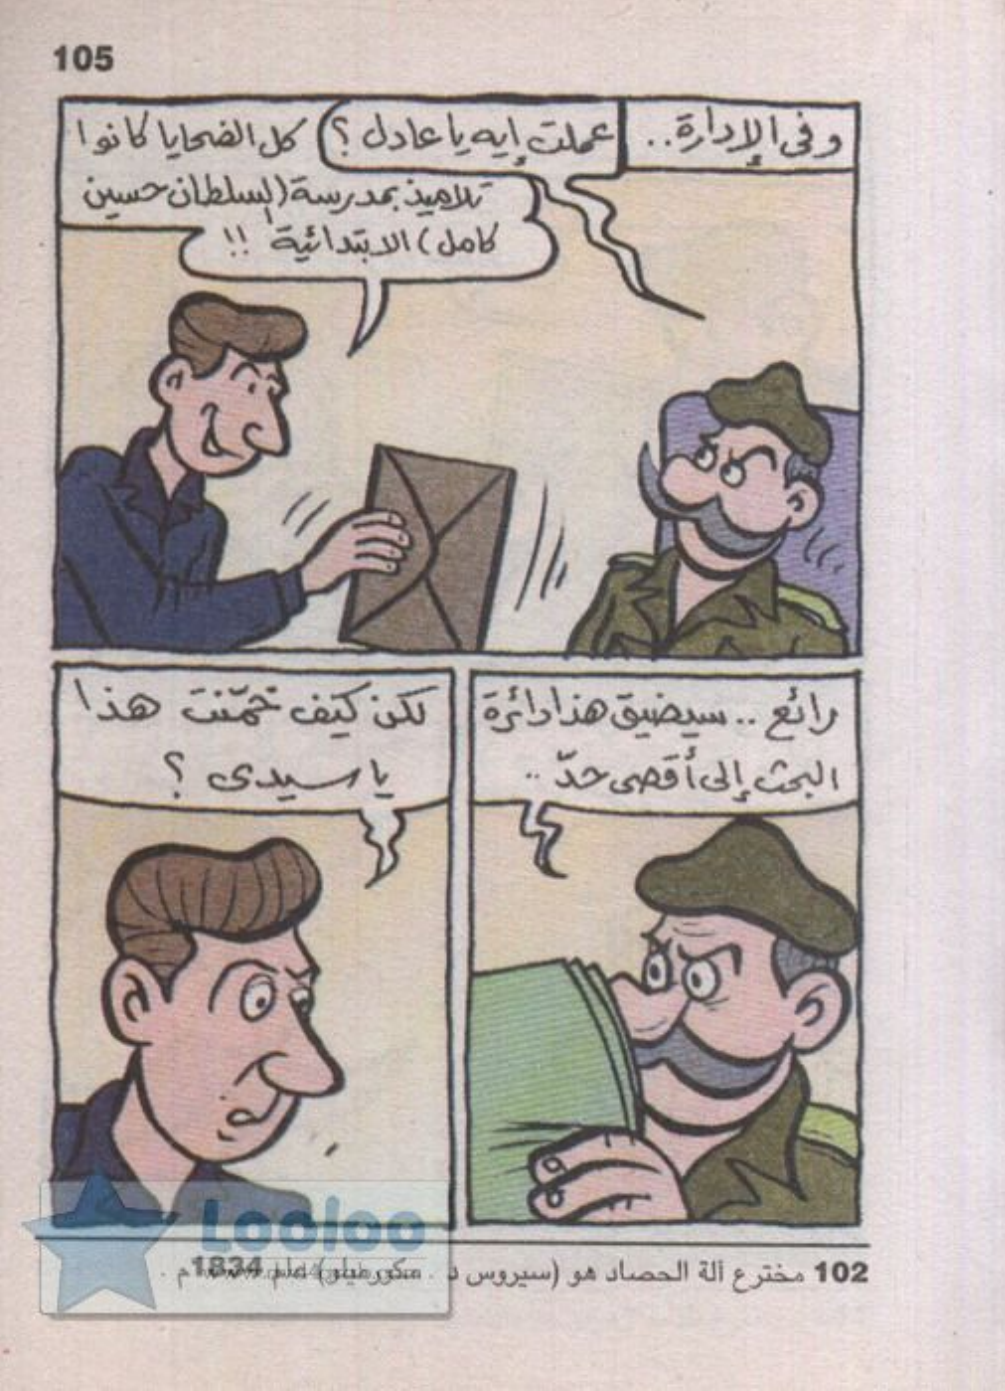 105
وفى الإدارة..
عملت إيه يا عادل ؟
كل الضحايا كانوا
تلاميذ بمدرسة (السلطان حسين
كامل) الابتدائية !!
رائع .. سيضيق هذا دائرة
البحث إلى أقصى حدّ ..
لكن كيف خمّنت هذا
يا سيدى ؟
Looloo
102 مخترع آلة الحصاد هو (سيروس د . مكورميك) عام 1834م .